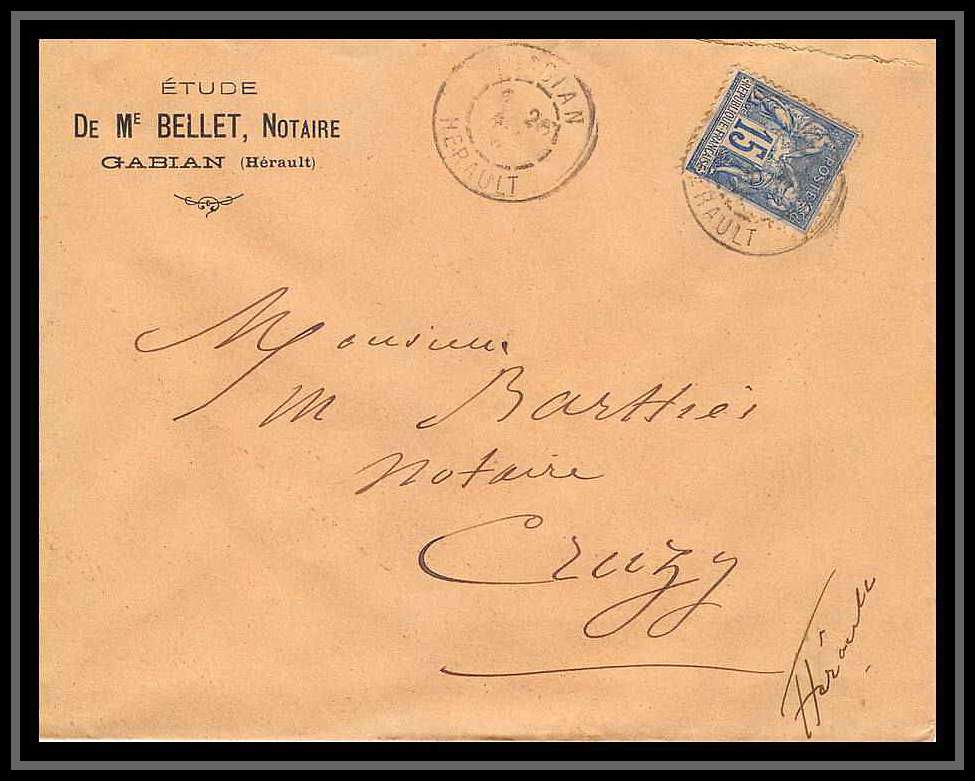 ÉTUDE
DE Mᴱ BELLET, NOTAIRE
GABIAN (Hérault)
26
HERAULT
15
REPUBLIQUE FRANCAISE
POSTES
HERAULT
Monsieur
M Barthès
notaire
Cruzy
Hérault